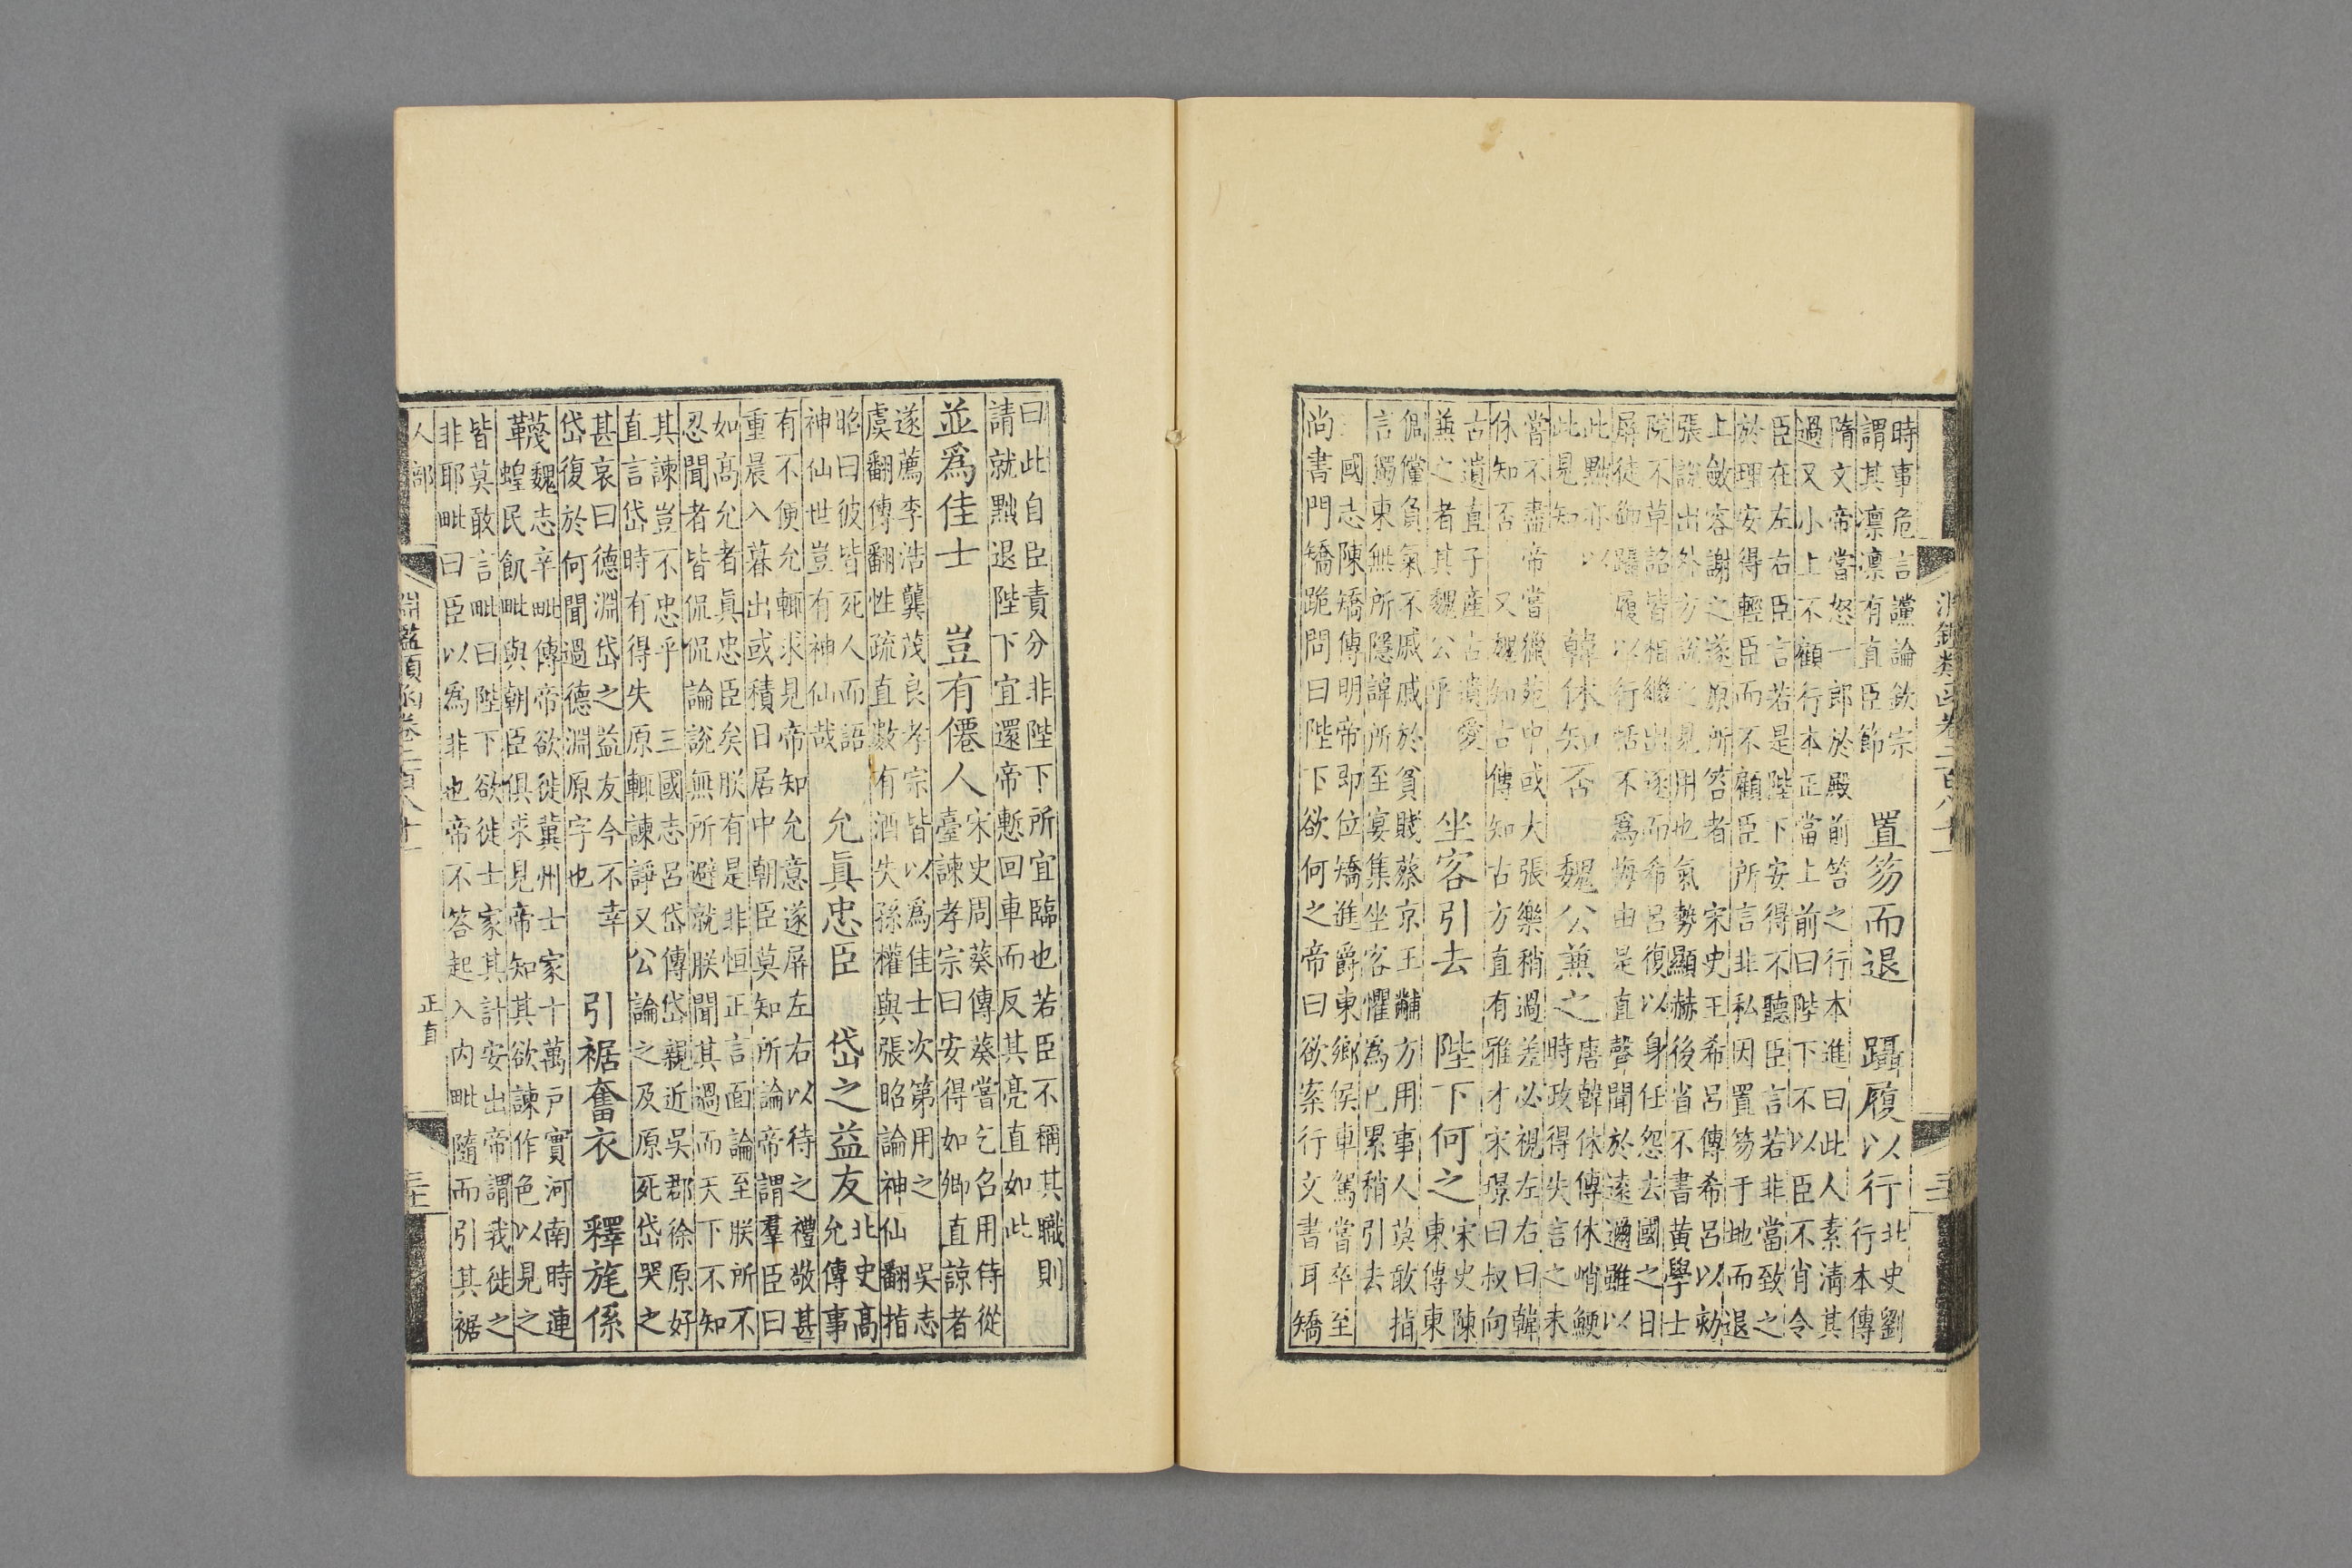 淵鑑類函卷二百八十一
時事危言讜論欽宗
謂其凛凛有直臣節
置笏而退　躡履以行
北史劉
行本傳
隋文帝當怒一郎於殿前笞之行本進曰此人素清其
過又小上不顧行本正當上前曰陛下不以臣不肖令
臣在左右臣言若是陛下安得不聽臣言若非當致之
於理安得輕臣而不顧臣所言非私因置笏于地而退
上斂容謝之遂原所笞者　宋史王希呂傳希呂以劾
張說出外方說之見用也氣勢顯赫後省不書黃學士
院不草詔皆相繼出逐而希呂復以身任怨去國之日
屏徒御躡履以行恬不爲悔由是直聲聞於遠邇雖以
此黜亦以
此見知
韓休知否　魏公兼之
唐韓休傳休峭鯁
時政得失言之未
嘗不盡帝嘗獵苑中或大張樂稍過差必視左右曰韓
休知否　又魏知古傳知古方直有雅才宋璟曰叔向
古遺直子產古遺愛
兼之者其魏公乎
坐客引去　陛下何之
宋史陳
東傳東
倜儻負氣不戚戚於貧賤蔡京王黼方用事人莫敢指
言獨東無所隱諱所至宴集坐客懼爲己累稍引去
三國志陳矯傳明帝即位矯進爵東鄉侯車駕當卒至
尚書門矯跪問曰陛下欲何之帝曰欲案行文書耳矯
曰此自臣責分非陛下所宜臨也若臣不稱其職則
請就黜退陛下宜還帝慙回車而反其亮直如此
並爲佳士　豈有僊人
宋史周葵傳葵嘗乞名用侍從
臺諫孝宗曰安得如卿直諒者
遂薦李浩龔茂良孝宗皆以爲佳士次第用之　吳志
虞翻傳翻性疏直數有酒失孫權與張昭論神仙翻指
昭曰彼皆死人而語
神仙世豈有神仙哉
允眞忠臣　岱之益友
北史高
允傳事
有不便允輒求見帝知允意遂屏左右以待之禮敬甚
重晨入暮出或積日居中朝臣莫知所論帝謂羣臣曰
如高允者眞忠臣矣朕有是非恒正言面論至朕所不
忍聞者皆侃侃論說無所避就朕聞其過而天下不知
其諫豈不忠乎　三國志呂岱傳岱親近吳郡徐原好
直言岱時有得失原輒諫諍又公論之及原死岱哭之
甚哀曰德淵岱之益友今不幸
岱復於何聞過德淵原字也
引裾奮衣　釋旄係
韈
魏志辛毗傳帝欲徙冀州士家十萬戶實河南時連
蝗民飢毗與朝臣俱求見帝知其欲諫作色以見之
皆莫敢言毗曰陛下欲徙士家其計安出帝謂我徙之
非耶毗曰臣以爲非也帝不答起入内毗隨而引其裾
人部　淵鑑類函卷二百八十一　正直